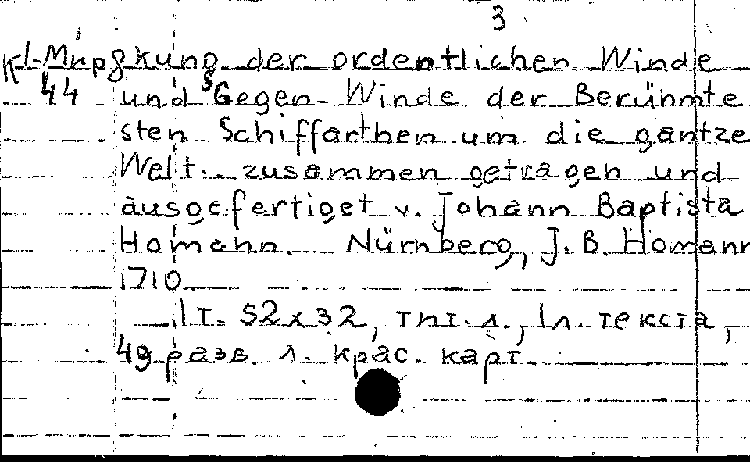 3
кung der ordentlichen Winde
44 und Gegen-Winde der Berühmte
sten Schiffarthen um die gantze
Welt. zusammen getragen und
ausgefertiget v. Johann Baptista
Homann. Nürnberg, J. B. Homann
1710.
1 т. 52x32, тит. л., 1 л. текста,
49 разв. л. крас. карт.